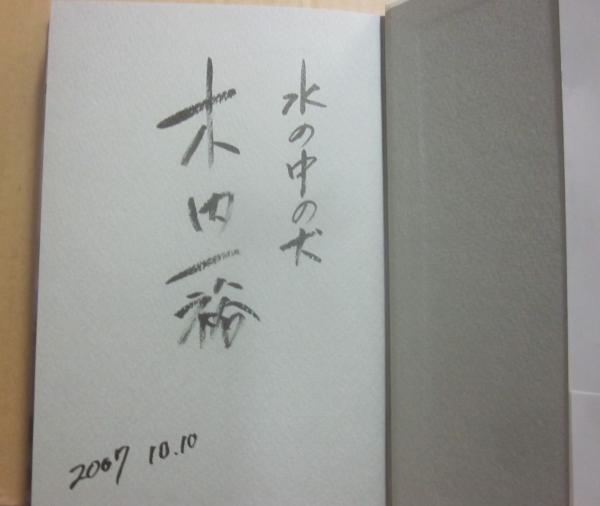 水の中の犬
木内一裕
2007 10.10